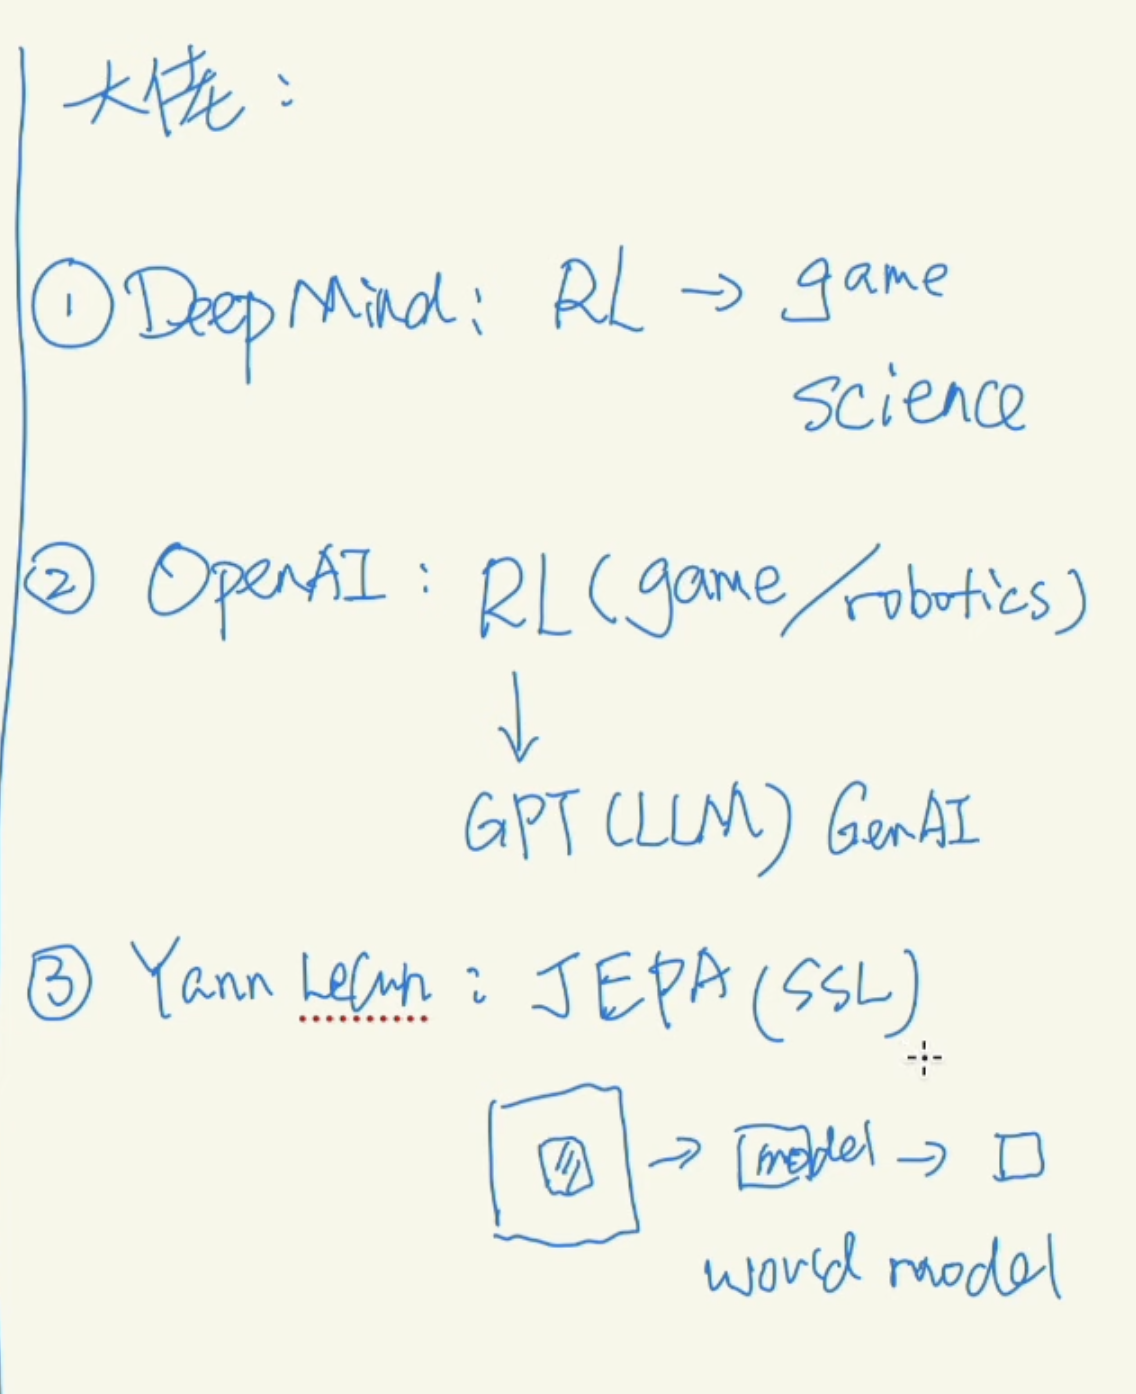 大佬：
① DeepMind: RL → game
science
② OpenAI: RL (game/robotics)
↓
GPT (LLM) GenAI
③ Yann LeCun: JEPA (SSL)
→ model →
world model